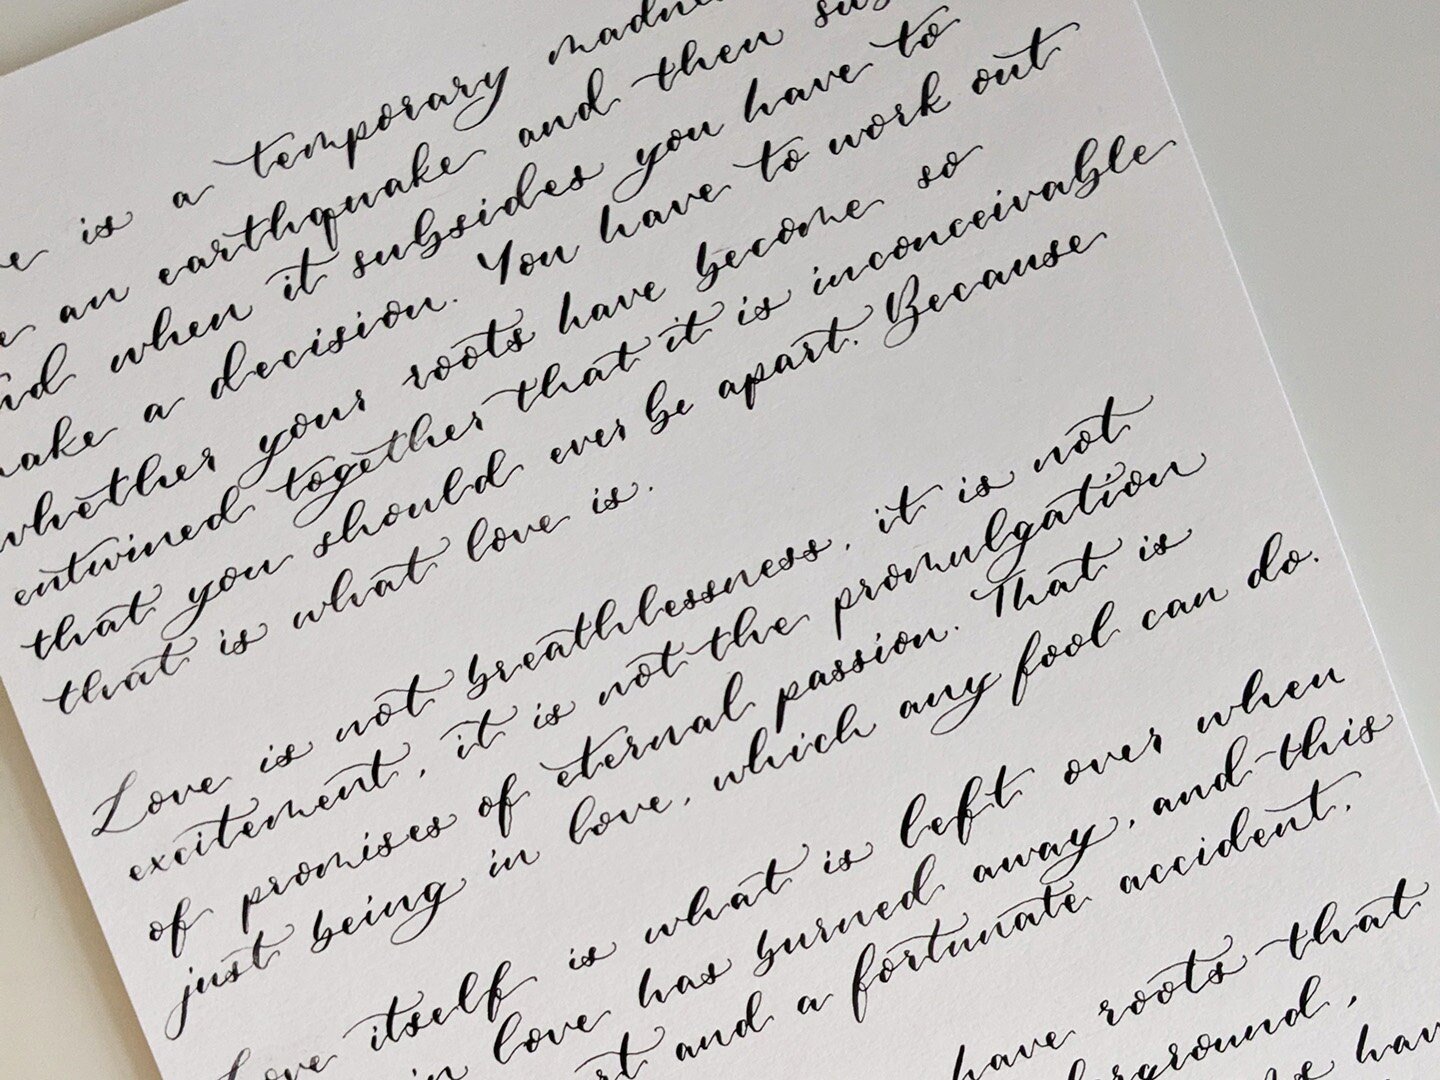 is a temporary
an earthquake and then
when it subsides you have to
a decision. You have to work out
whether your roots have become so
entwined together that it is inconceivable
that you should ever be apart. Because
that is what love is.
Love is not breathlessness, it is not
excitement, it is not the promulgation
of promises of eternal passion. That is
just being in love, which any fool can do.
Love itself is what is left over when
in love has burned away, and this
and a fortunate accident.
have roots that